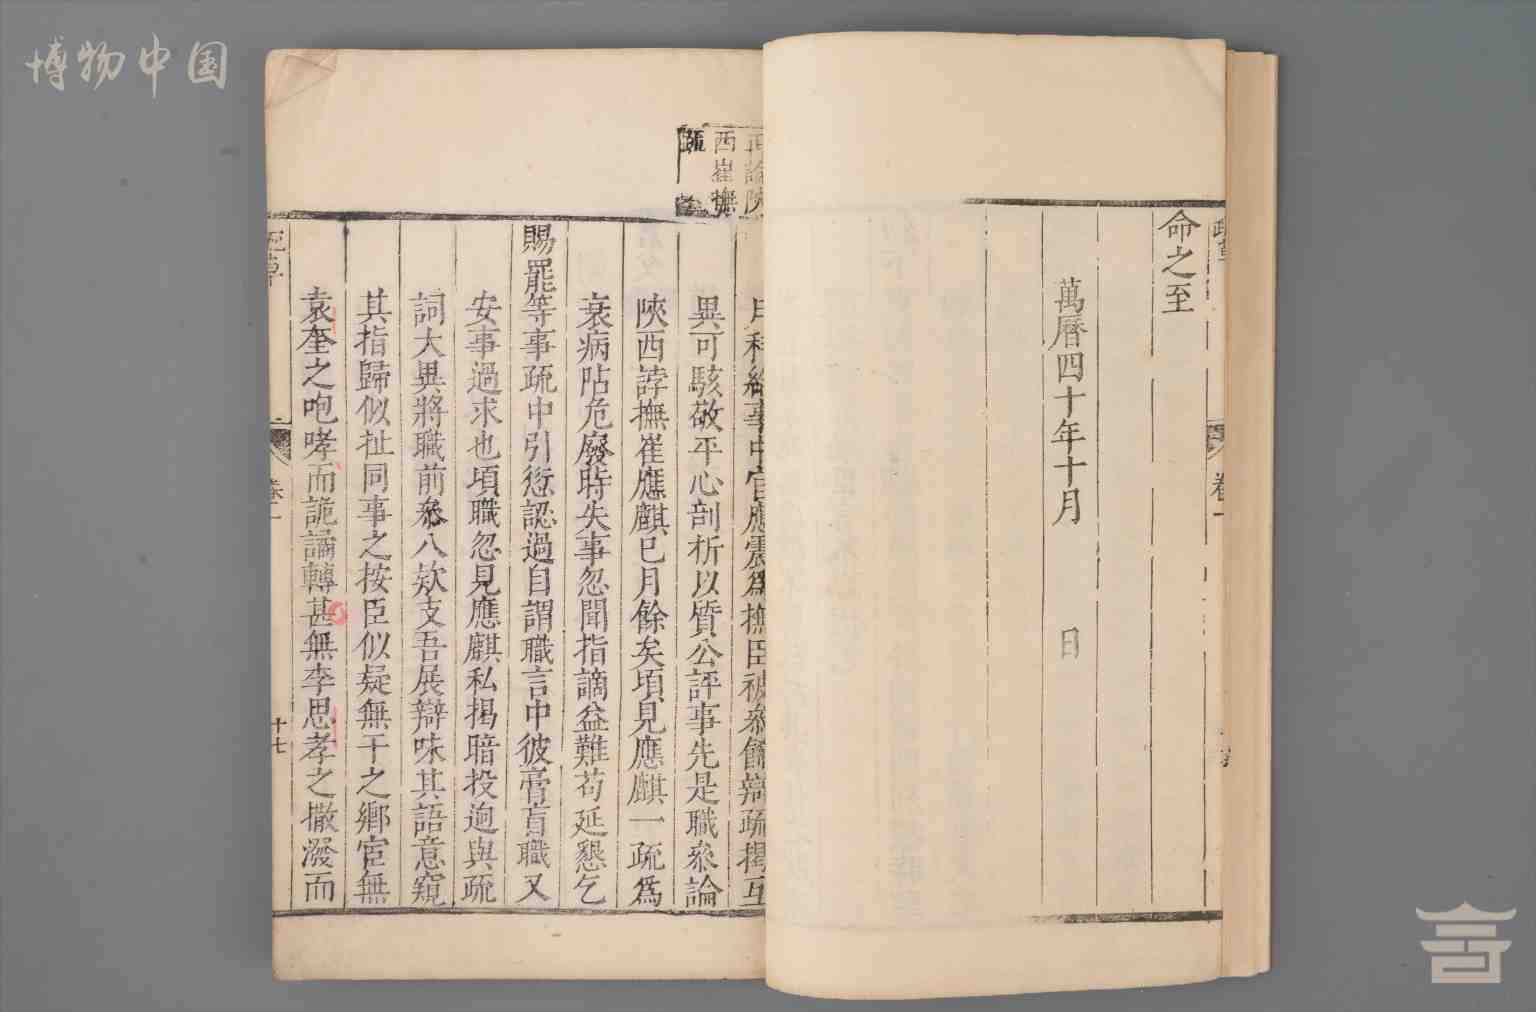 博物中国
命之至
萬曆四十年十月　日
卷一
再論陝
西崔撫
疏
戶科給事中官應震爲撫臣被叅飾辯疏揭互
異可駭敬平心剖析以質公評事先是職叅論
陝西諄撫崔應麒已月餘矣頃見應麒一疏爲
衰病阽危廢時失事忽聞指謫益難苟延懇乞
賜罷等事疏中引愆認過自謂職言中彼膏盲職又
安事過求也頃職忽見應麒私揭暗投迥與疏
詞大異將職前叅八欸支吾展辯味其語意窺
其指歸似扯同事之按臣似疑無干之鄉宦無
袁奎之咆哮而詭譎轉甚無李思孝之撒潑而
卷二
十七